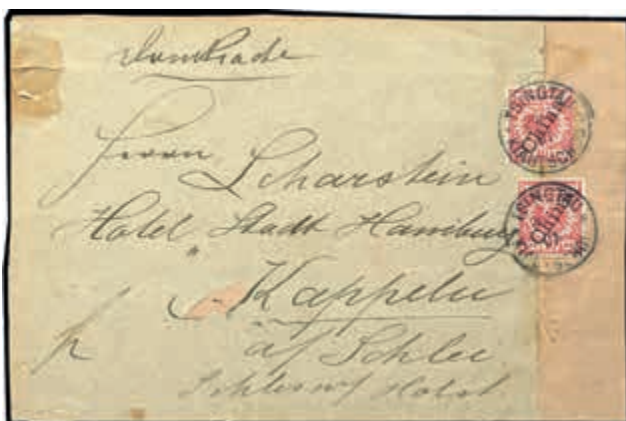 Drucksache
Herrn
Scharstein
Hotel Stadt Hamburg
Kappeln
a/ Schlei
Schleswig Holst.
TSINGTAU
China
KIAUTSCHOU
TSINGTAU
China